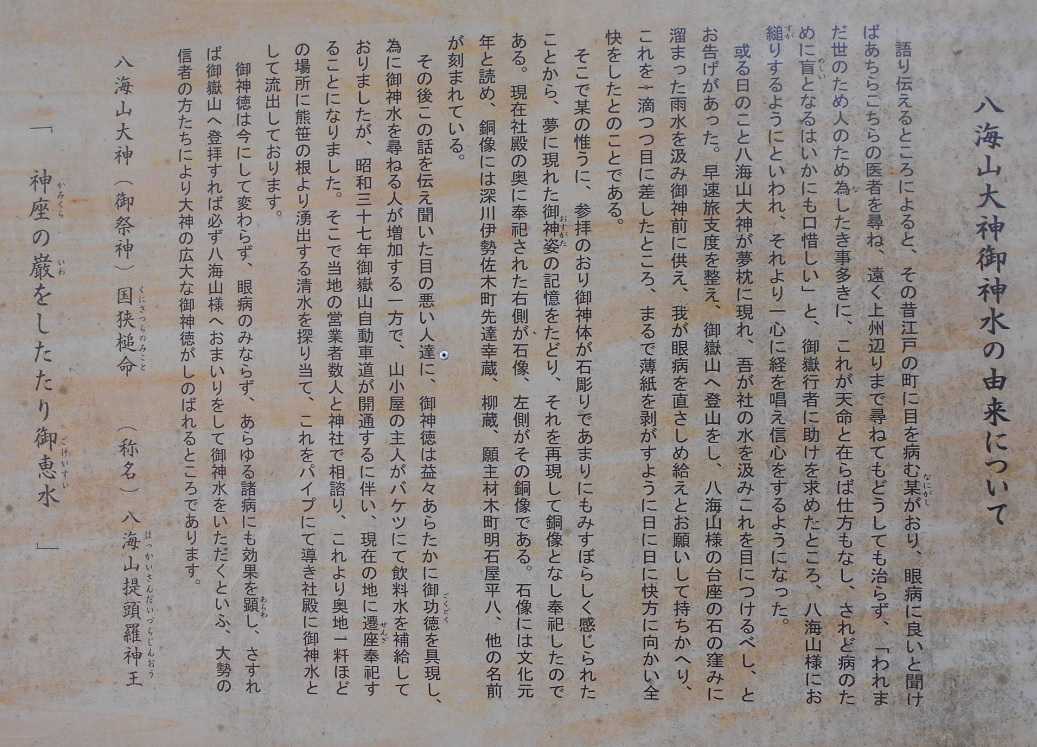 八海山大神御神水の由来について
語り伝えるところによると、その昔江戸の町に目を病む某がおり、眼病に良いと聞け
ばあちらこちらの医者を尋ね、遠く上州辺りまで尋ねてもどうしても治らず、「われま
だ世のため人のため為したき事多きに、これが天命と在らば仕方もなし、されど病のた
めに盲となるはいかにも口惜しい」と、御嶽行者に助けを求めたところ、八海山様にお
縋りするようにといわれ、それより一心に経を唱え信心をするようになった。
或る日のこと八海山大神が夢枕に現れ、吾が社の水を汲みこれを目につけるべし、と
お告げがあった。早速旅支度を整え、御嶽山へ登山をし、八海山様の台座の石の窪みに
溜まった雨水を汲み御神前に供え、我が眼病を直さしめ給えとお願いして持ちかへり、
これを一滴つつ目に差したところ、まるで薄紙を剥がすように日に日に快方に向かい全
快をしたとのことである。
そこで某の惟うに、参拝のおり御神体が石彫りであまりにもみすぼらしく感じられた
ことから、夢に現れた御神姿の記憶をたどり、それを再現して銅像となし奉祀したので
ある。現在社殿の奥に奉祀された右側が石像、左側がその銅像である。石像には文化元
年と読め、銅像には深川伊勢佐木町先達幸蔵、柳蔵、願主材木町明石屋平八、他の名前
が刻まれている。
その後この話を伝え聞いた目の悪い人達に、御神徳は益々あらたかに御功徳を具現し、
為に御神水を尋ねる人が増加する一方で、山小屋の主人がバケツにて飲料水を補給して
おりましたが、昭和三十七年御嶽山自動車道が開通するに伴い、現在の地に遷座奉祀す
ることになりました。そこで当地の営業者数人と神社で相諮り、これより奥地一粁ほど
の場所に熊笹の根より湧出する清水を探り当て、これをパイプにて導き社殿に御神水と
して流出しております。
御神徳は今にして変わらず、眼病のみならず、あらゆる諸病にも効果を顕し、さすれ
ば御嶽山へ登拝すれば必ず八海山様へおまいりをして御神水をいただくといふ、大勢の
信者の方たちにより大神の広大な御神徳がしのばれるところであります。
八海山大神(御祭神)国狭槌命 (称名)八海山提頭羅神王
「 神座の巌をしたたり御恵水 」